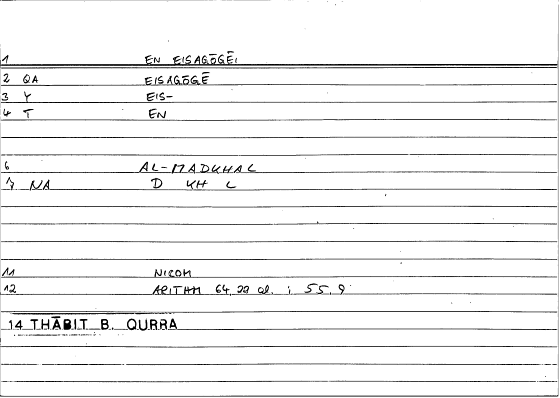 1 EN EISAGŌGĒI
2 QA EISAGŌGĒ
3 Y EIS-
4 T EN
6 AL-MADKHAL
7 NA D KH L
11 NIKOM
12 ARITHM 64, 22 al. ; 55, 9
14 THĀBIT B. QURRA